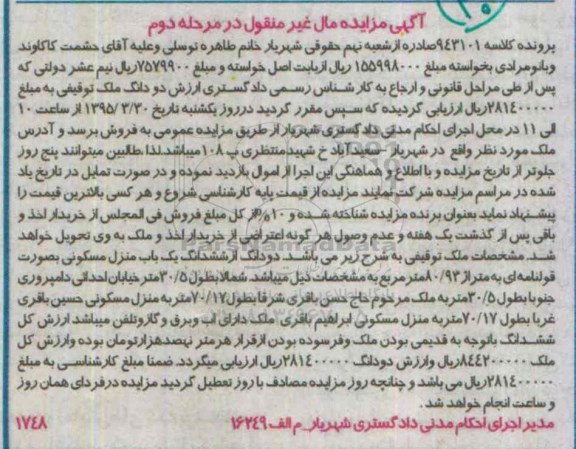 ۲۵
آگهی مزایده مال غیر منقول در مرحله دوم
پرونده کلاسه ۹۴۳۱۰۱صادره ازشعبه نهم حقوقی شهریار خانم طاهره توسلی وعلیه آقای حشمت کاکاوند
وبانومرادی بخواسته مبلغ ۱۵۵۹۹۸۰۰۰ ریال ازبابت اصل خواسته و مبلغ ۷۵۷۹۹۰۰ریال نیم عشر دولتی که
پس از طی مراحل قانونی و ارجاع به کارشناس رسمی دادگستری ارزش دو دانگ ملک توقیفی به مبلغ
۲۸۱۴۰۰۰۰۰ریال ارزیابی گردیده که سپس مقرر گردید درروز یکشنبه تاریخ ۱۳۹۵/۳/۳۰ از ساعت ۱۰
الی ۱۱ در محل اجرای احکام مدنی دادگستری شهریار از طریق مزایده عمومی به فروش برسد و آدرس
ملک مورد نظر واقع در شهریار سعیدآباد خ شهید منتظری پ ۱۰۸ میباشد.لذا طالبین میتوانند پنج روز
جلوتر از تاریخ مزایده و با اطلاع و هماهنگی این اجرا از اموال بازدید نموده و در صورت تمایل در تاریخ یاد
شده در مراسم مزایده شرکت نمایند مزایده از قیمت پایه کارشناسی شروع و هر کسی بالاترین قیمت را
پیشنهاد نماید بعنوان برنده مزایده شناخته شده و ۱۰٪از کل مبلغ فروش فی المجلس از خریدار اخذ و
باقی پس از گذشت یک هفته و عدم وصول هر گونه اعتراضی از خریدار اخذ و ملک به وی تحویل خواهد
شد. مشخصات ملک توقیفی به شرح زیر می باشد. دودانگ ازششدانگ یک باب منزل مسکونی بصورت
قولنامه ای به متراژ ۸۰/۹۳متر مربع به مشخصات ذیل میباشد شمالابطول ۳۰/۵متر خیابان احداثی دامپروری
جنوبا بطول ۳۰/۵متر به ملک مرحوم حاج حسن باقری شرقا بطول ۷۰/۱۷متر به منزل مسکونی حسین باقری
غربا بطول ۷۰/۱۷متر به منزل مسکونی ابراهیم باقری ملک دارای آب وبرق و گازوتلفن میباشد ارزش کل
ششدانگ باتوجه به قدیمی بودن ملک وفرسوده بودن ازقرار هر متر نهصدهزارتومان بوده وارزش کل
ملک ۸۴۴۲۰۰۰۰۰ریال وارزش دودانگ ۲۸۱۴۰۰۰۰۰ریال ارزیابی میگردد. ضمنا مبلغ کارشناسی به مبلغ
۲۸۱۴۰۰۰۰۰ریال می باشد و چنانچه روز مزایده مصادف با روز تعطیل گردید مزایده درفردای همان روز
و ساعت انجام خواهد شد.
مدیر اجرای احکام مدنی دادگستری شهریار_م الف ۱۶۲۴۹ ۱۷۴۸